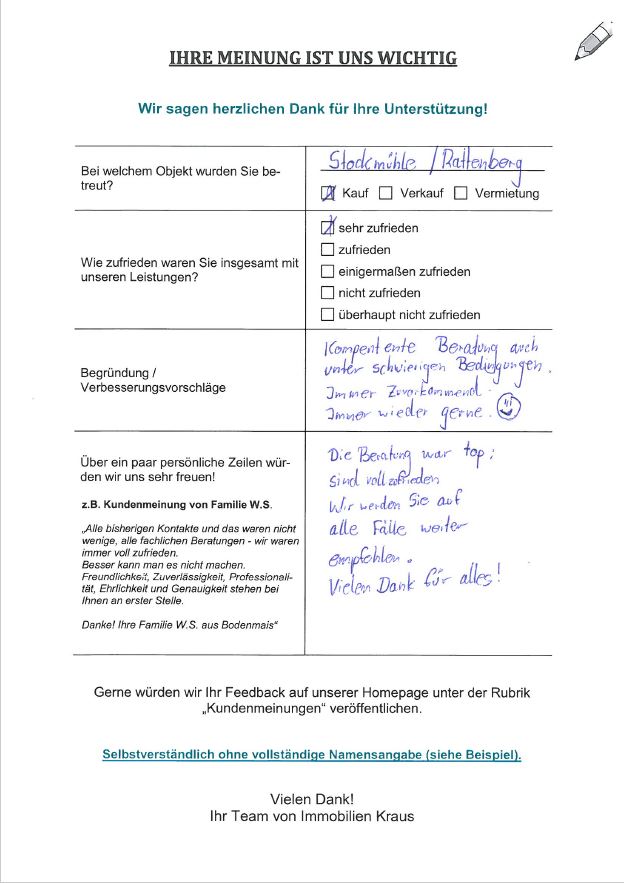 IHRE MEINUNG IST UNS WICHTIG
Wir sagen herzlichen Dank für Ihre Unterstützung!
Bei welchem Objekt wurden Sie be-
treut?
Stockmühle / Rattenberg
Kauf Verkauf Vermietung
Wie zufrieden waren Sie insgesamt mit
unseren Leistungen?
sehr zufrieden
zufrieden
einigermaßen zufrieden
nicht zufrieden
überhaupt nicht zufrieden
Begründung /
Verbesserungsvorschläge
Kompentente Beratung auch
unter schwierigen Bedingungen.
Immer Zuvorkommend.
Immer wieder gerne.
Über ein paar persönliche Zeilen wür-
den wir uns sehr freuen!
z.B. Kundenmeinung von Familie W.S.
„Alle bisherigen Kontakte und das waren nicht
wenige, alle fachlichen Beratungen - wir waren
immer voll zufrieden.
Besser kann man es nicht machen.
Freundlichkeit, Zuverlässigkeit, Professionali-
tät, Ehrlichkeit und Genauigkeit stehen bei
Ihnen an erster Stelle.
Danke! Ihre Familie W.S. aus Bodenmais“
Die Beratung war top;
sind voll zufrieden
Wir werden Sie auf
alle Fälle weiter
empfehlen.
Vielen Dank für alles!
Gerne würden wir Ihr Feedback auf unserer Homepage unter der Rubrik
„Kundenmeinungen“ veröffentlichen.
Selbstverständlich ohne vollständige Namensangabe (siehe Beispiel).
Vielen Dank!
Ihr Team von Immobilien Kraus